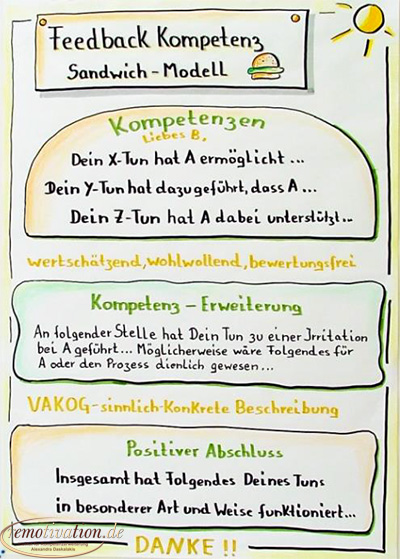 Feedback Kompetenz
Sandwich - Modell
Kompetenzen
Liebes B,
Dein X-Tun hat A ermöglicht ...
Dein Y-Tun hat dazugeführt, dass A ...
Dein Z-Tun hat A dabei unterstützt...
wertschätzend, wohlwollend, bewertungsfrei
Kompetenz - Erweiterung
An folgender Stelle hat Dein Tun zu einer Irritation
bei A geführt... Möglicherweise wäre Folgendes für
A oder den Prozess dienlich gewesen ...
VAKOG-sinnlich-Konkrete Beschreibung
Positiver Abschluss
Insgesamt hat Folgendes Deines Tuns
in besonderer Art und Weise funktioniert...
DANKE !!
remotivation.de